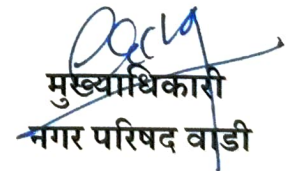 मुख्याधिकारी
नगर परिषद वाडी